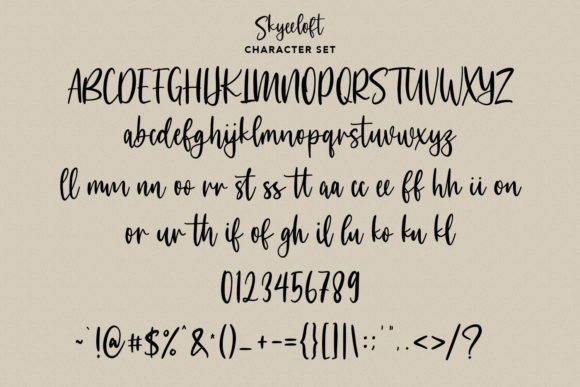 Skyeeloft
CHARACTER SET
ABCDEFGHIJKLMNOPQRSTUVWXYZ
abcdefghijklmnopqrstuvwxyz
ll mm nn oo rr st ss tt aa cc ee ff hh ii on
or ur th if of gh il lu ko ku kl
0123456789
~`!@#$%^&*()_+-={}[]|\:;'",.<>/?